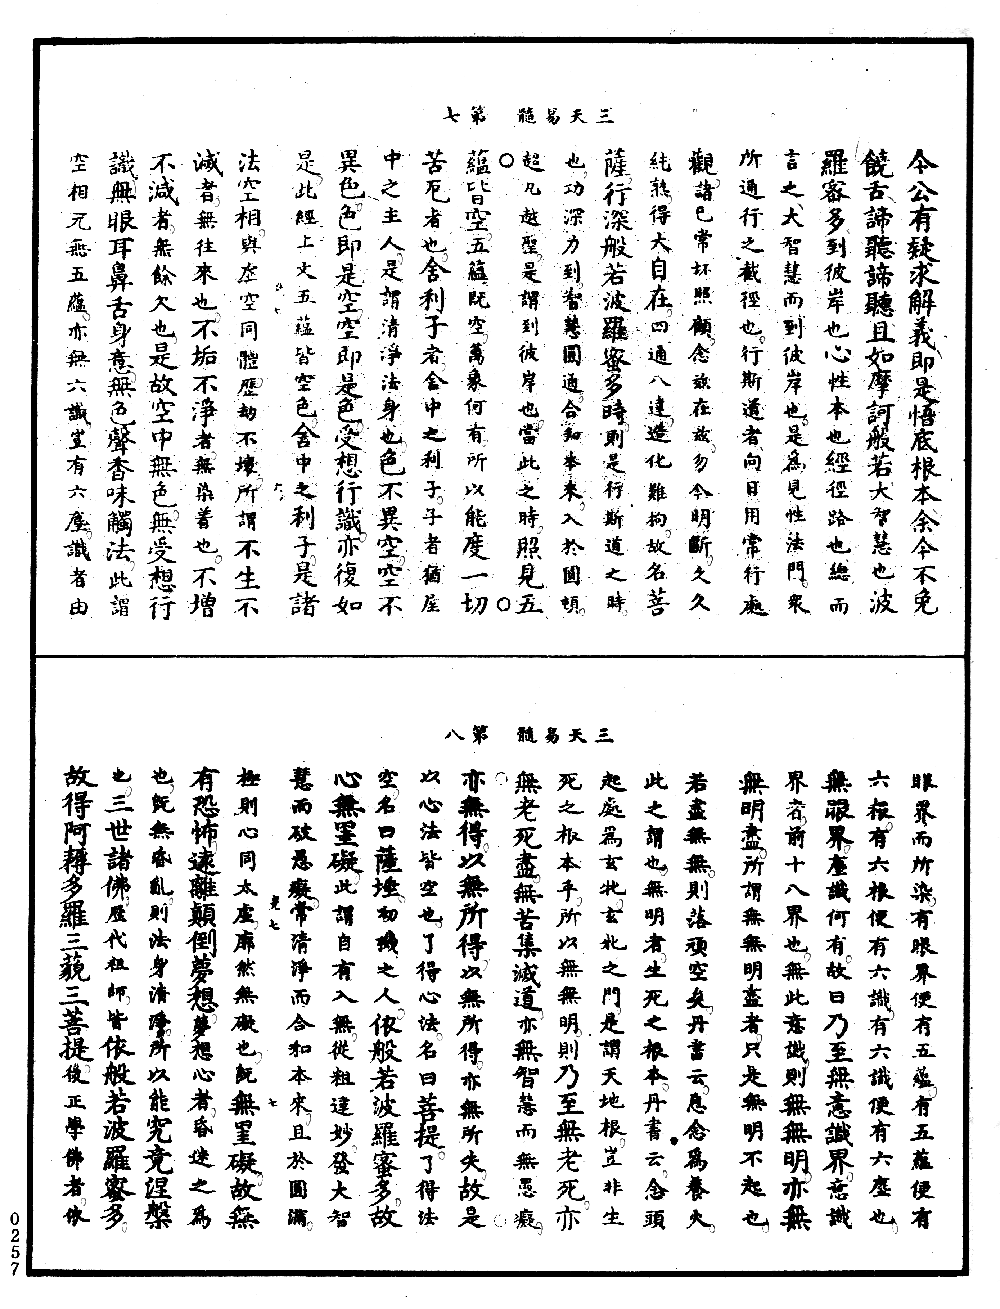 三天易髓　第七
今公有疑求解義即是悟底根本余今不免
饒舌諦聽諦聽且如摩訶般若大智慧也波
羅蜜多到彼岸也心性本也經徑路也總而
言之大智慧而到彼岸也是為見性法門衆
所通行之截徑也行斯道者向日用常行處
觀諸已常坏照顧念兹在兹勿令明斷久久
純熟得大自在四通八達造化難拘故名菩
薩行深般若波羅蜜多時則是行斯道之時
也功深力到智慧圓通合和本來入於圓頓
超凡越聖是謂到彼岸也當此之時照見五
蘊皆空五蘊既空萬象何有所以能度一切
苦厄者也舍利子者舍中之利子子者猶屋
中之主人是謂清淨法身也色不異空空不
異色色即是空空即是色受想行識亦復如
是此經上文五蘊皆空色舍中之利子是諸
法空相與虛空同體歷劫不壞所謂不生不
滅者無往來也不垢不淨者無染著也不增
不減者無餘欠也是故空中無色無受想行
識無眼耳鼻舌身意無色聲香味觸法此謂
空相元無五蘊亦無六識豈有六塵識者由
三天易髓　第八
眼界而所染有眼界便有五蘊有五蘊便有
六根有六根便有六識有六識便有六塵也
無眼界塵識何有故曰乃至無意識界意識
界者前十八界也無此意識則無無明亦無
無明盡所謂無無明盡者只是無明不起也
若盡無無則落頑空矣丹書云息念為養火
此之謂也無明者生死之根本丹書云念頭
起處為玄牝玄牝之門是謂天地根豈非生
死之根本乎所以無無明則乃至無老死亦
無老死盡無苦集滅道亦無智慧而無愚癡
亦無得以無所得以無所得亦無所失故是
以心法皆空也了得心法名曰菩提了得法
空名曰薩埵初機之人依般若波羅蜜多故
心無罣礙此謂自有入無從粗達妙發大智
慧而破愚癡常清淨而合和本來且於圓滿
極則心同太虛廓然無礙也既無罣礙故無
有恐怖遠離顛倒夢想夢想心者昏迷之為
也既無昏亂則法身清淨所以能究竟涅槃
也三世諸佛歷代祖師皆依般若波羅蜜多
故得阿耨多羅三藐三菩提後正學佛者依
0257